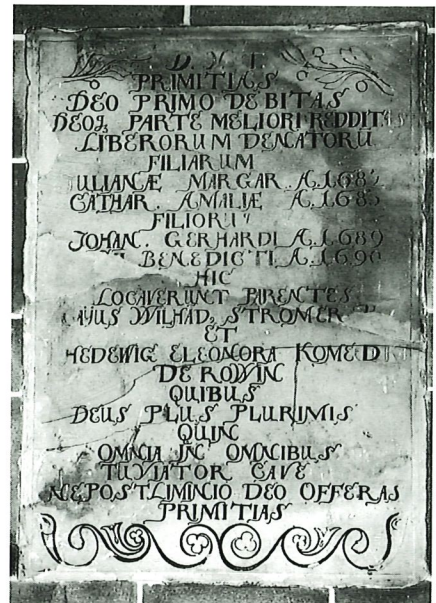 D. M. T.
PRIMITIAS
DEO PRIMO DEBITAS
DEOq₃ PARTE MELIORI REDDITAS
LIBERORUM DENATORŪ
FILIARUM
IULIANÆ MARGAR. A. 168
CATHAR. AMALIÆ A. 1685
FILIORU
JOHAN. GERHARDI A. 1689
BENEDICTI A. 1690
HIC
LOCAVERUNT PARENTES
WILHAD. STROMER
ET
HEDEWIG ELEONORA KOMED
DE ROWIN
QUIBUS
DEUS PLUS PLURIMIS
QUIN
OMNIA IN OMNIBUS
TU VIATOR CAVE
NE POSTLIMINIO DEO OFFERAS
PRIMITIAS